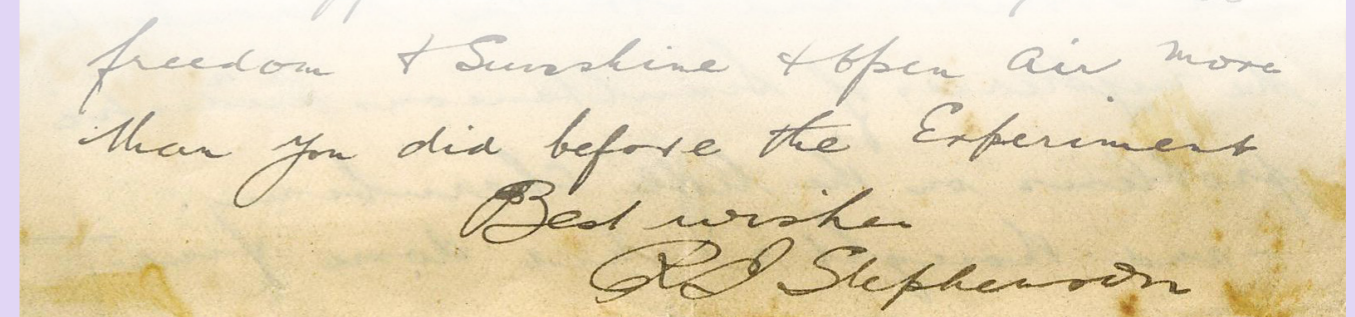 freedom & Sunshine & open air more
than you did before the Experiment
Best wishes
R J Stephenson